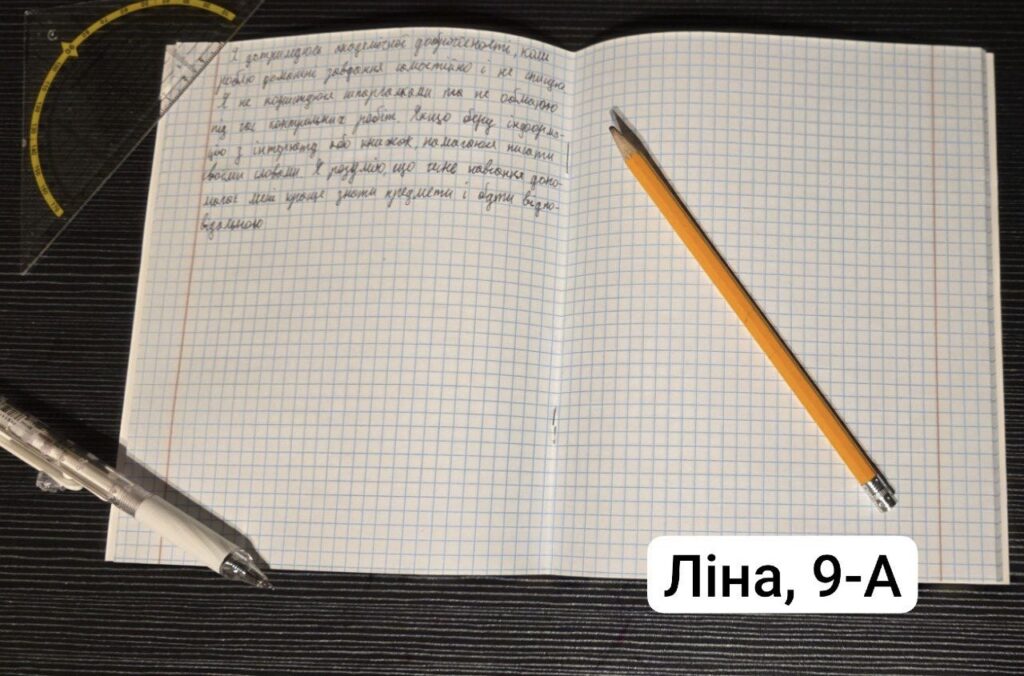 Я дотримуюся академічної доброчесності, коли
роблю домашні завдання самостійно і не списую.
Я не користуюся шпаргалками та не обманюю
під час контрольних робіт. Якщо беру інформа-
цію з інтернету або книжок, намагаюся писати
своїми словами. Я розумію, що чесне навчання допо-
магає мені краще знати предмети і бути відпо-
відальною
Ліна, 9-А